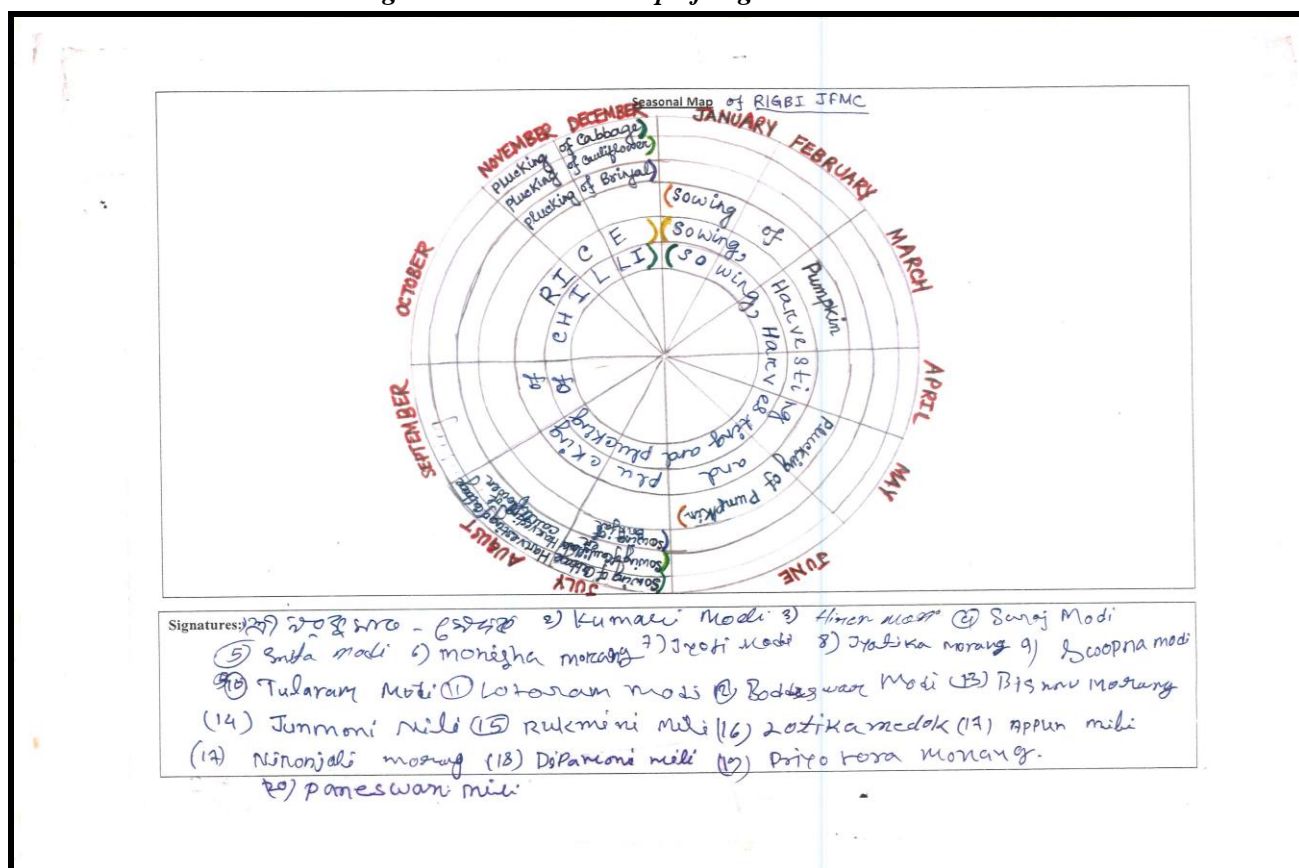 Seasonal Map of RIGBI JFMC
JANUARY
FEBRUARY
MARCH
APRIL
MAY
JUNE
JULY
AUGUST
SEPTEMBER
OCTOBER
NOVEMBER
DECEMBER
Plucking of Cabbage)
plucking of Cauliflower)
plucking of Brinjal)
(Sowing of Pumpkin
plucking of Pumpkin)
(Sowing, Harvesting and plucking of RICE)
(Sowing, Harvesting and plucking of CHILLI)
Sowing of Brinjal
Sowing of
Harvesting of Cauliflower
Sowing of Cabbage Harvesting of Cabbage
Signatures:
2) Kumali Modi 3) Hiren 4) Suraj Modi
5) Smita Modi 6) monisha morang 7) Jyoti Modi 8) Jyotika morang 9) Swopna modi
10) Tularam Modi 11) Lotoram modi 12) Boddeswar Modi 13) Bisnnu Morang
(14) Junmoni Mili 15) Rukmini Mili (16) Lotika medok (17) Appun mili
(17) Nironjoli morang (18) Dipamoni mili (19) Priyo tora Morang.
20) Paneswar mili